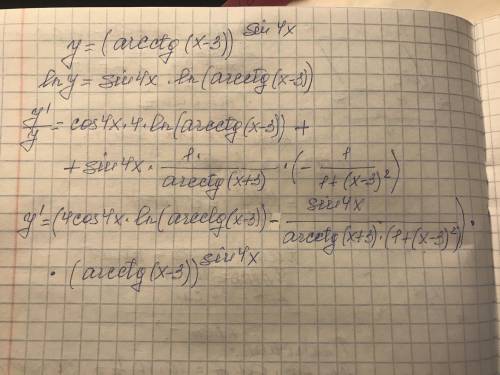 y = (arcctg(x-3))^sin4x
ln y = sin4x · ln(arcctg(x-3))
y'/y = cos4x · 4 · ln(arcctg(x-3)) +
+ sin4x · 1/arcctg(x+3) · (- 1/1+(x-3)²)
y' = (4cos4x · ln(arcctg(x-3)) - sin4x/arcctg(x+3)·(1+(x-3)²)) ·
· (arcctg(x-3))^sin4x